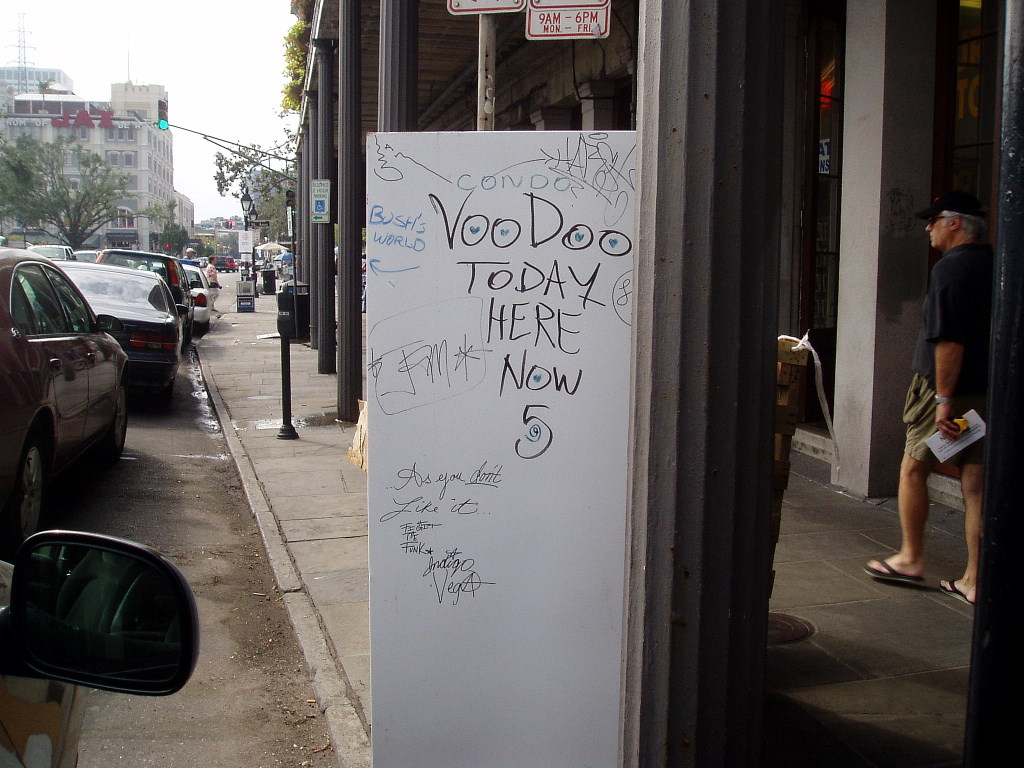 9AM – 6PM
MON. – FRI.
JAX
CONDO
BUSH'S
WORLD
VOODOO
TODAY
HERE
NOW
5
As you don't
Like it...
FUNK*
Indigo
Vega